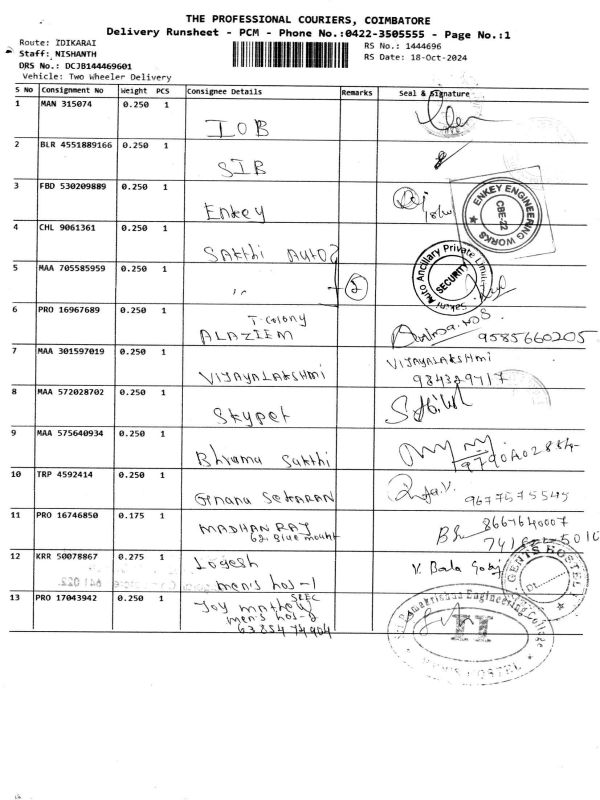 THE PROFESSIONAL COURIERS, COIMBATORE
Delivery Runsheet - PCM - Phone No.:0422-3505555 - Page No.:1
Route: IDIKARAI
RS No.: 1444696
Staff: NISHANTH
RS Date: 18-Oct-2024
DRS No.: DCJB144469601
Vehicle: Two Wheeler Delivery
S No Consignment No Weight PCS Consignee Details Remarks Seal & Signature
1 MAN 315074 0.250 1 IOB
2 BLR 4551889166 0.250 1 SIB
3 FBD 530209889 0.250 1 Enkey
ENKEY ENGINEERING WORKS
CBE-22
4 CHL 9061361 0.250 1 SAkthi AUTOS
5 MAA 705585959 0.250 1 ,, 2
Auto Ancillary Private Limited
SECURITY
6 PRO 16967689 0.250 1 T-colony
ALAZIEM
9585660205
7 MAA 301597019 0.250 1 VIJAYALAKSHMI VIJAYALAKSHMI
8 MAA 572028702 0.250 1 Skypet
9 MAA 575640934 0.250 1 Bhrama Sakthi
10 TRP 4592414 0.250 1 Gnana SeKARAN
9677575545
11 PRO 16746850 0.175 1 MADHAN RAJ
62 blue mount
8667640007
12 KRR 50078867 0.275 1 Logesh
men's hos-1
V. Bala
GENTS HOSTEL
13 PRO 17043942 0.250 1 Joy mathew SREC
men's hos-2
6385474904
Sri Ramakrishna Engineering College
II
MEN'S HOSTEL